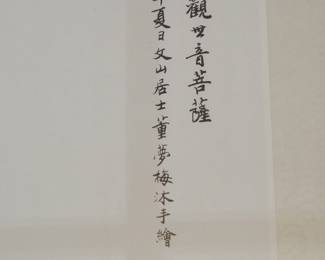 觀世音菩薩
夏日文山居士董夢梅沐手繪